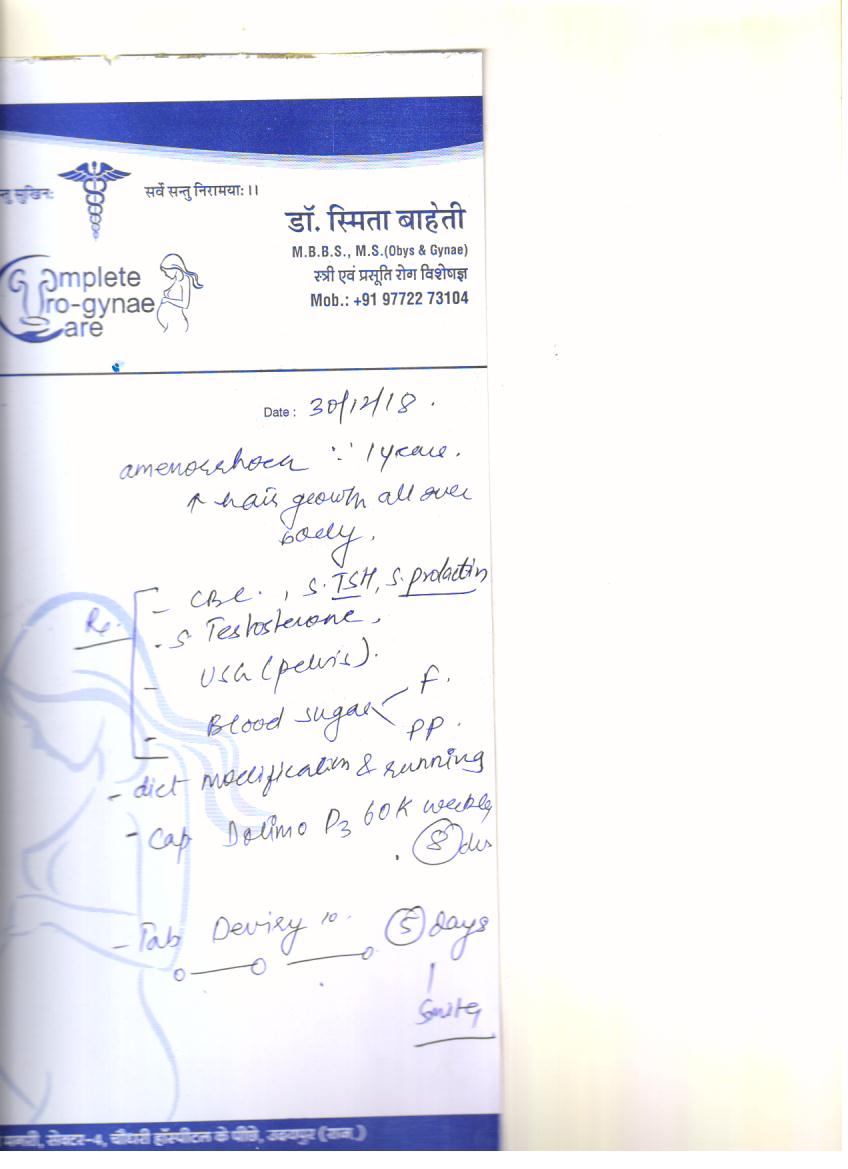 सर्वे सन्तु निरामयाः ।।
डॉ. स्मिता बाहेती
M.B.B.S., M.S.(Obys & Gynae)
स्त्री एवं प्रसूति रोग विशेषज्ञ
Mob.: +91 97722 73104
Complete
Uro-gynae
Care
Date : 30/12/18 .
amenorrhoea ∵ 1 year.
↑ hair growth all over
body.
Rx.
- CBC. , S. TSH, S. prolactin
- S Testosterone ,
- USG (pelvis).
- Blood sugar F.
PP .
- diet modification & running
- Cap D3 60K weekly
. 8
- Tab Deviry 10. 5 days
o — o — o
Smita
सेक्टर-4, चौधरी हॉस्पीटल के पीछे, उदयपुर (राज.)